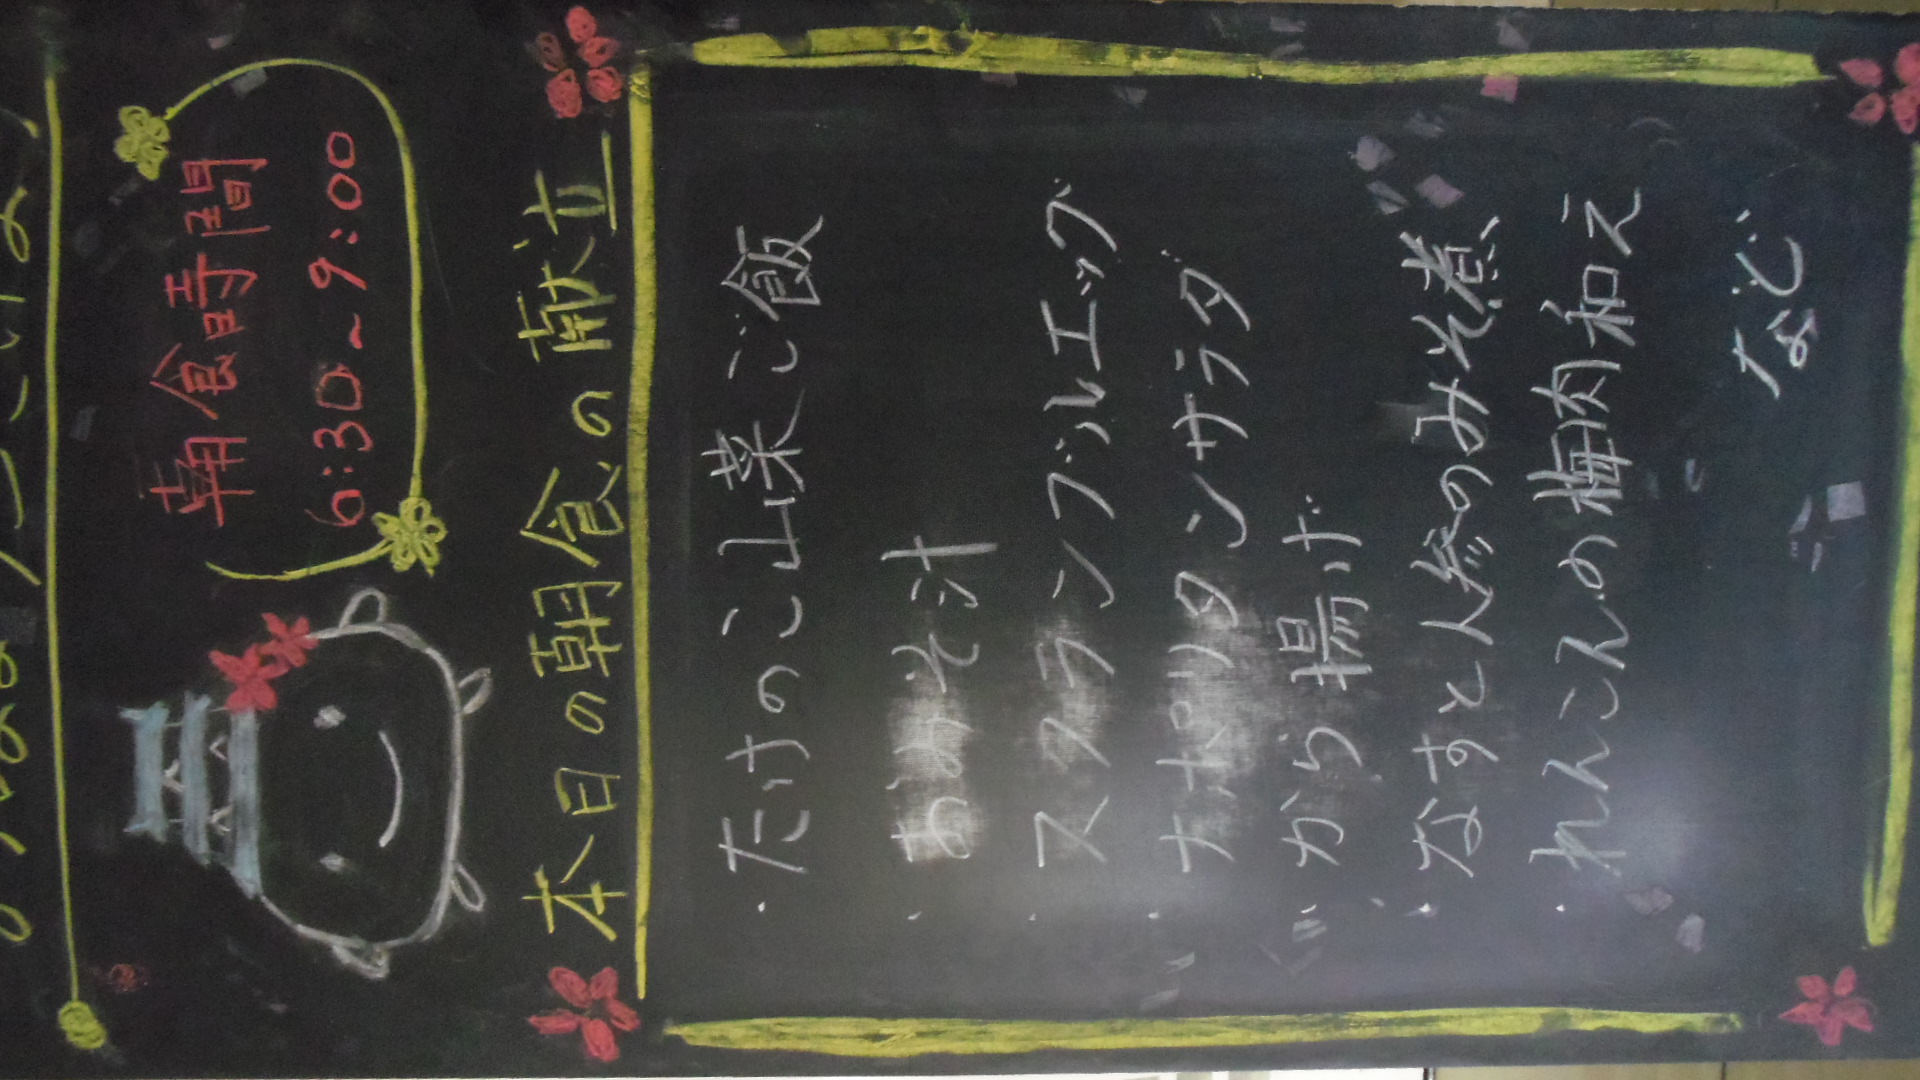 朝食時間
6:30~9:00
本日の朝食の献立
・たけのこ山菜ご飯
・おみそ汁
・スクランブルエッグ
・ナポリタンサラダ
・から揚げ
・なすと人参のみそ煮
・れんこんの梅肉和え
など